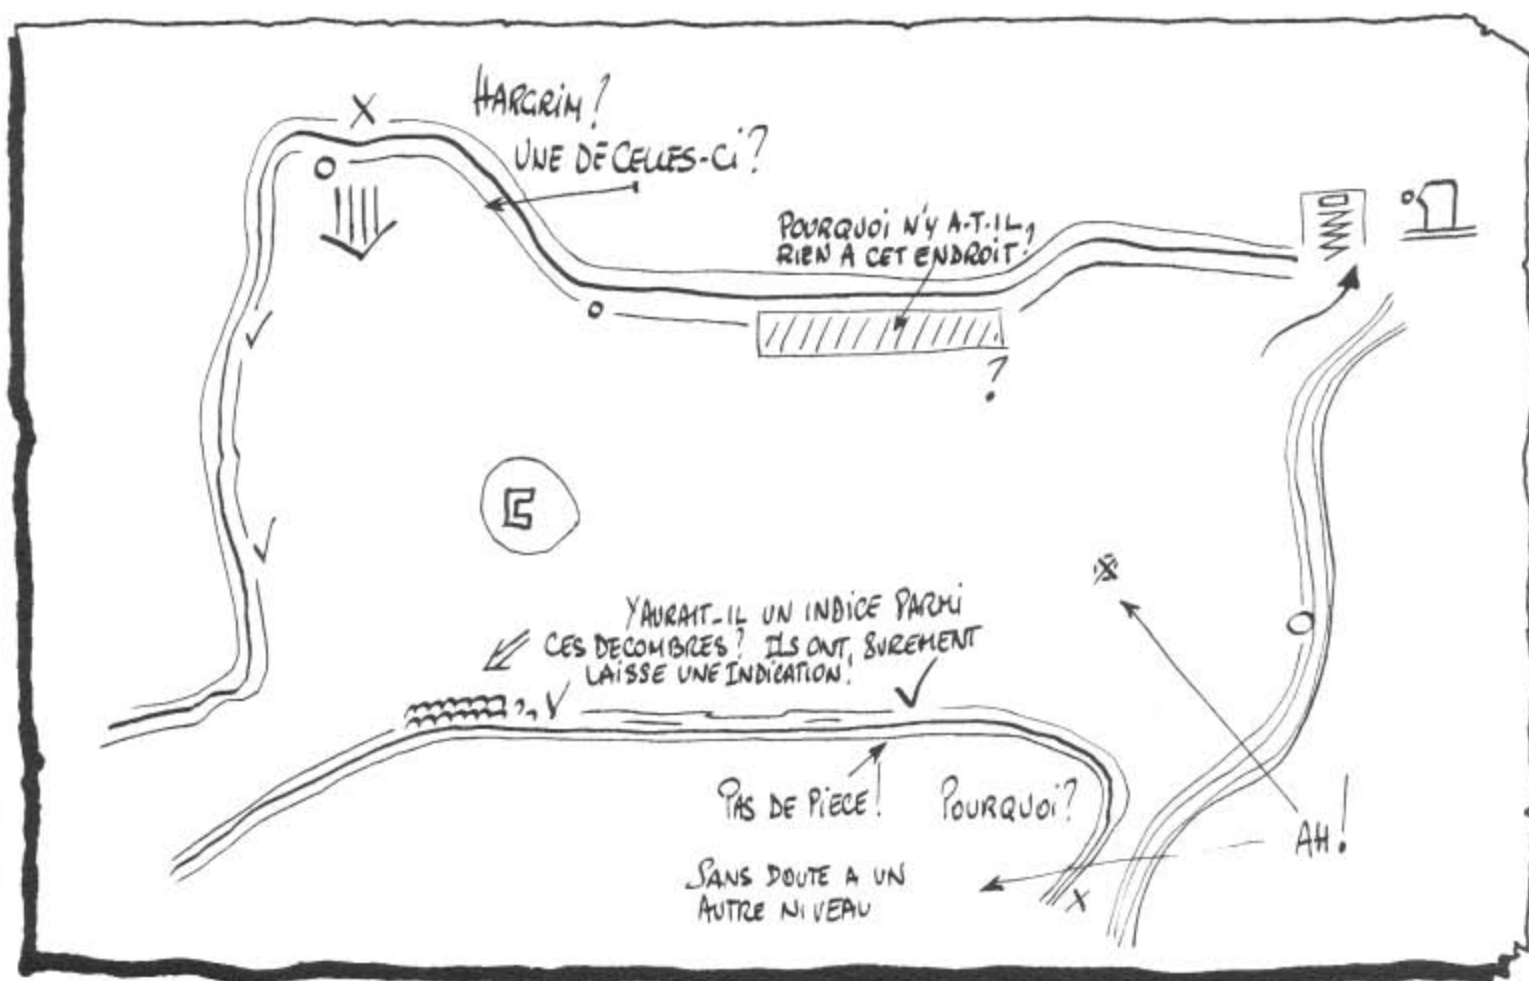 HARGRIM?
UNE DE CELLES-CI?
POURQUOI N'Y A-T-IL
RIEN A CET ENDROIT?
?
YAURAIT-IL UN INDICE PARMI
CES DECOMBRES? ILS ONT SUREMENT
LAISSE UNE INDICATION!
PAS DE PIECE! POURQUOI?
AH!
SANS DOUTE A UN
AUTRE NIVEAU